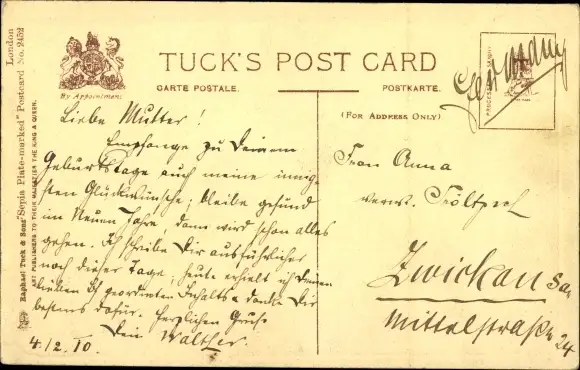 London
"Sepia Plate-marked" Postcard No. 2452
Raphael Tuck & Sons
ART PUBLISHERS TO THEIR MAJESTIES THE KING & QUEEN.
By Appointment
TUCK'S POST CARD
CARTE POSTALE.
POSTKARTE.
(FOR ADDRESS ONLY)
Germany
Liebe Mutter!
Empfange zu Deinem
Geburtstage auch meine innig-
sten Glückwünsche; bleibe gesund
im Neuen Jahre, dann wird schon alles
gehen. Ich schreibe Dir ausführlicher
noch dieser Tage; heute erhielt ich Deinen
lieben geordneten Inhalts & danke Dir
bestens dafür. Herzlichen Gruß
Dein Walther.
4./2.10.
Frau Anna
verw.
Zwickau Sa.
Mittelstraße 24